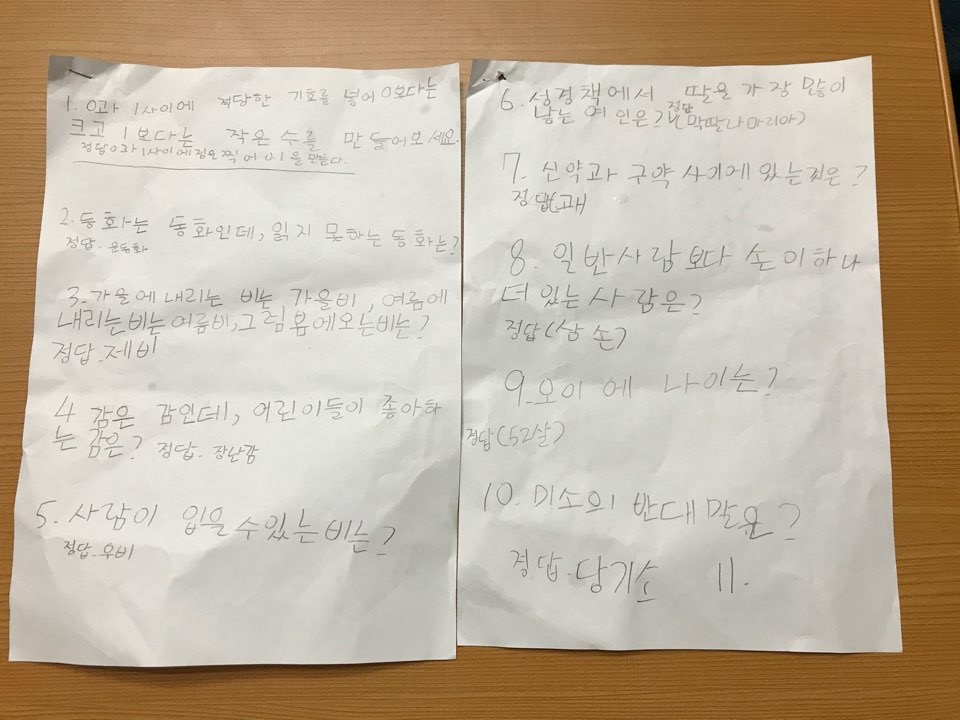 1. 0과 1사이에 적당한 기호를 넣어 0보다는
크고 1보다는 작은 수를 만들어보세요.
정답 0과 1사이에 점을 찍어 0.1을 만든다.
2. 동화는 동화인데, 읽지 못하는 동화는?
정답. 운동화
3. 가을에 내리는 비는 가을비, 여름에
내리는비는 여름비, 그럼 봄에오는비는?
정답. 제비
4 감은 감인데, 어린이들이 좋아하
는 감은? 정답. 장난감
5. 사람이 입을 수 있는 비는?
정답. 우비
6. 성경책에서 딸을 가장 많이
낳는 여인은? 정답 (막딸나 마리아)
7. 신약과 구약 사이에 있는 것은?
정답(고래)
8. 일반사람보다 손이 하나
더 있는 사람은?
정답(삼손)
9. 오이에 나이는?
정답(52살)
10. 미소의 반대말은?
정답. 당기소 11.